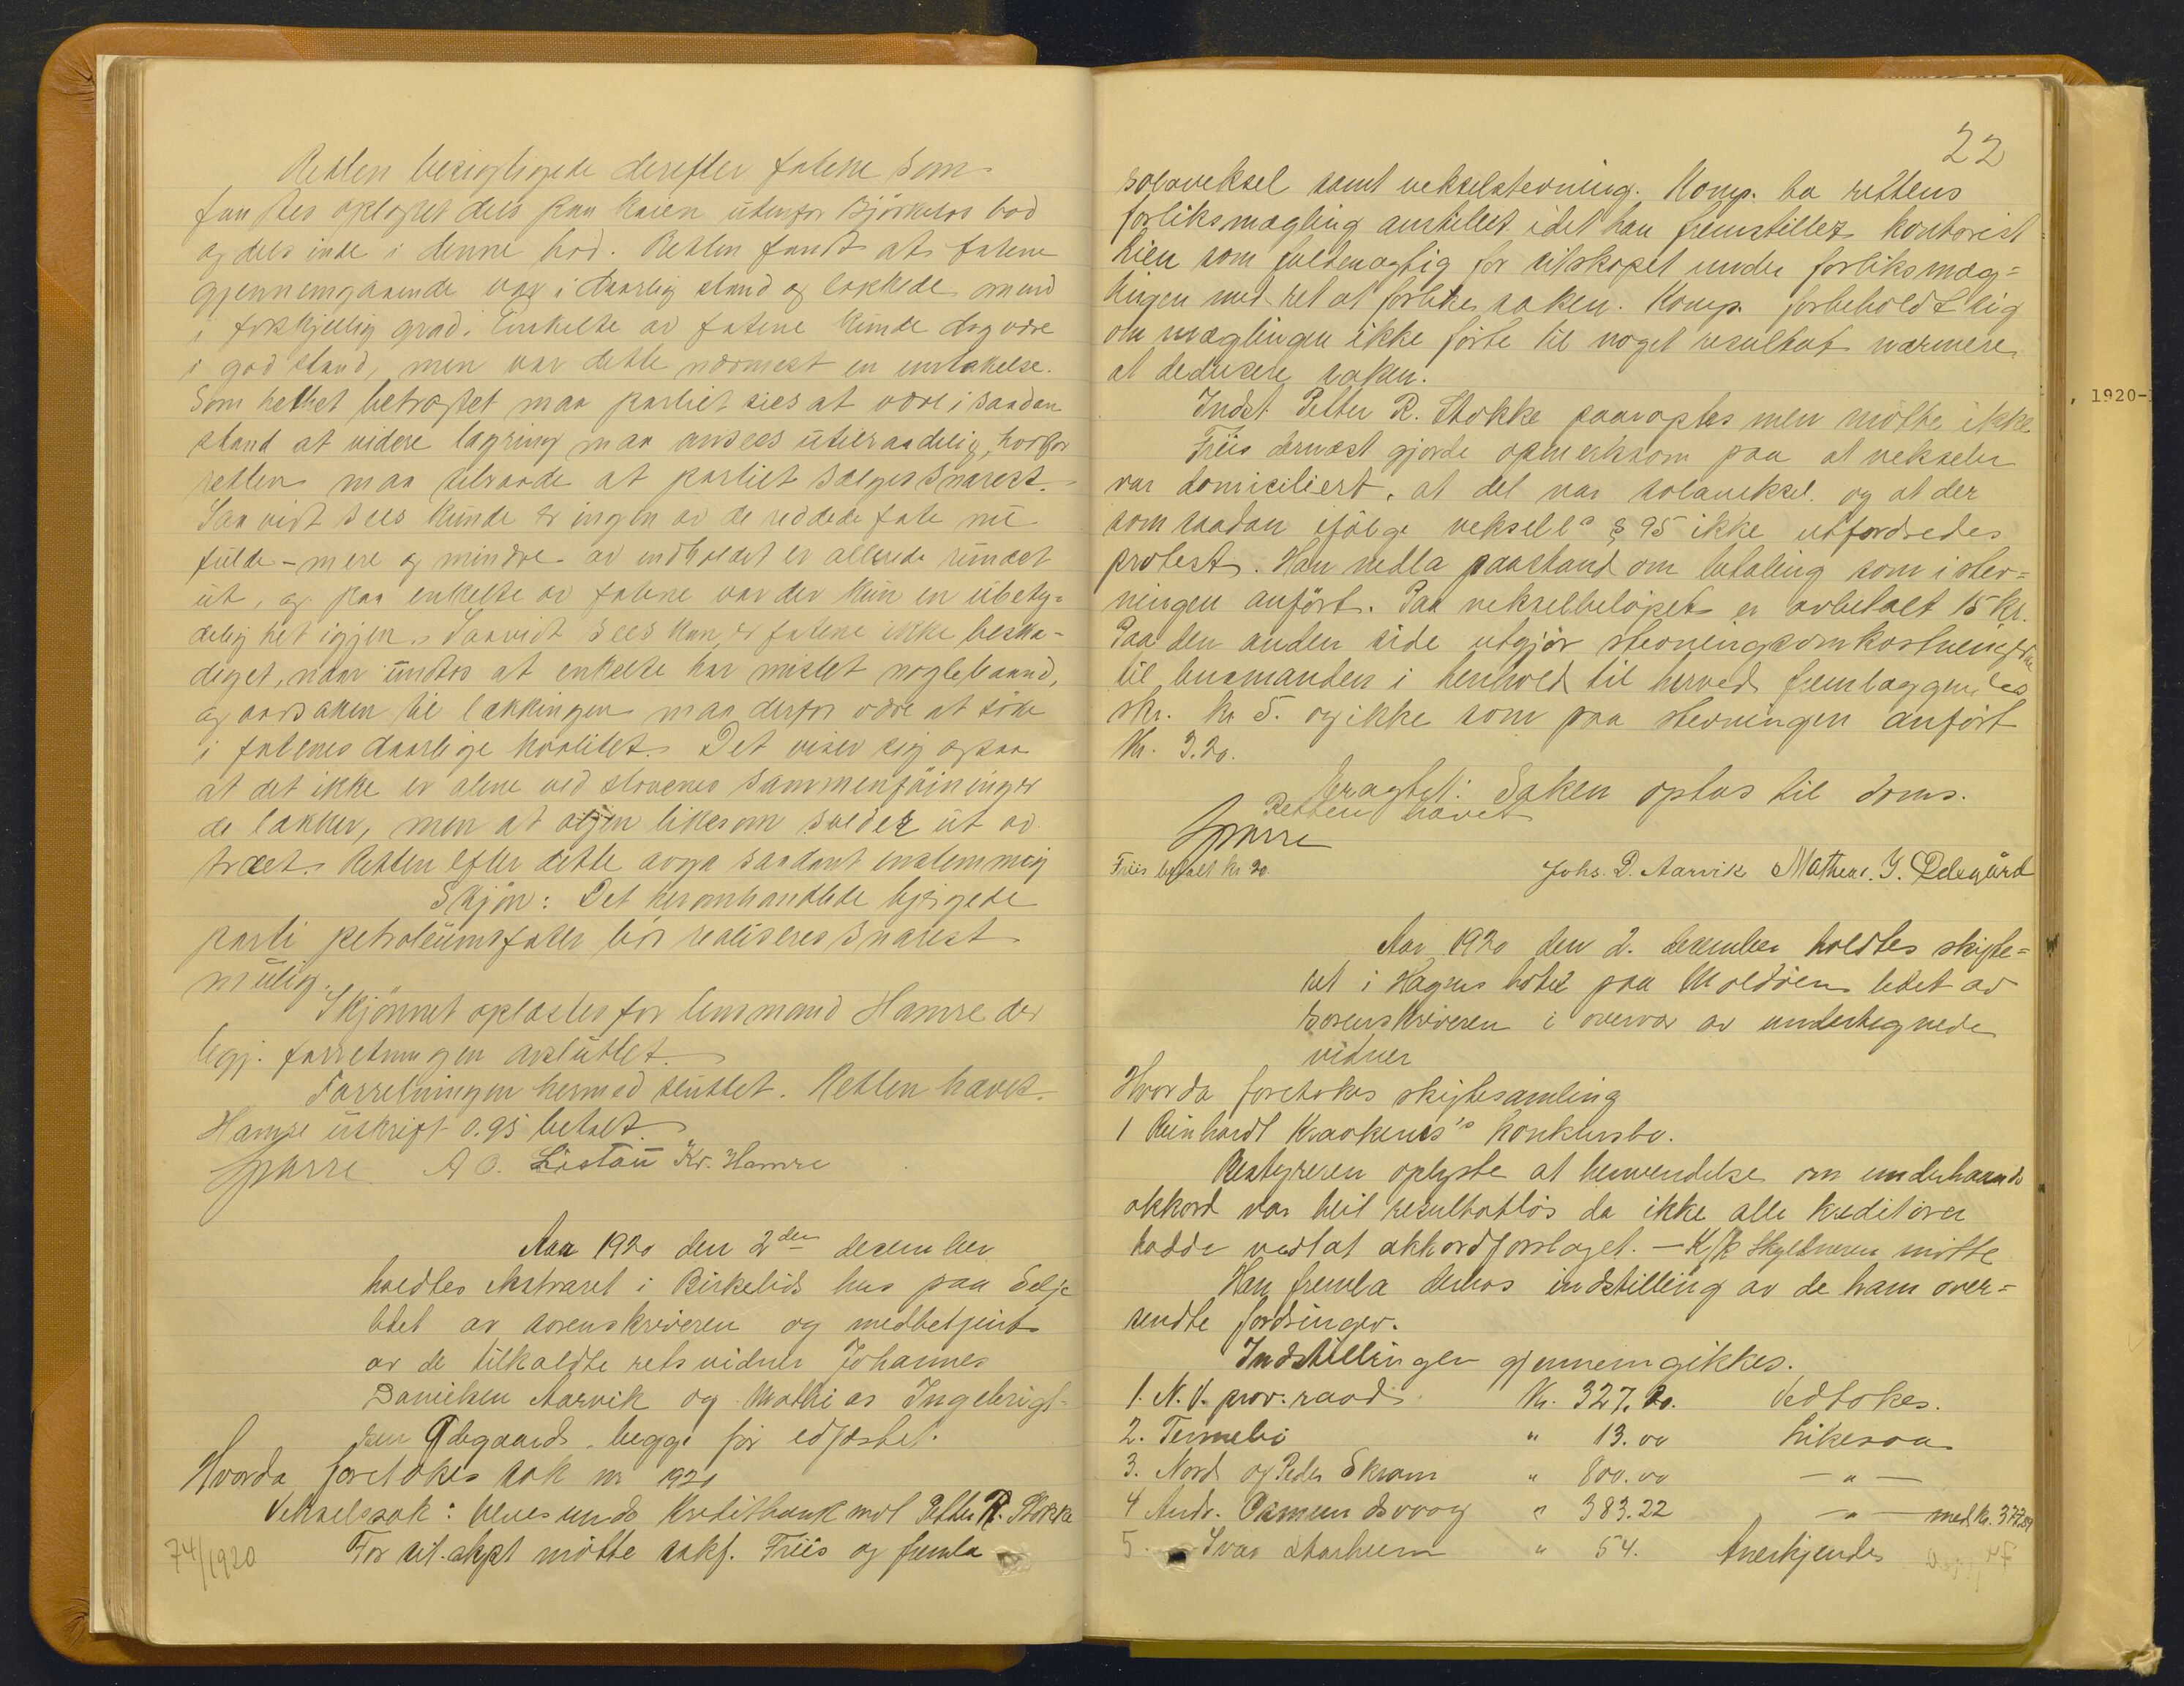 Retten besigtigede derefter fatene som
fandtes oplagret dels paa kaien utenfor Björkelos bod
og dels inde i denne bod. Retten fandt at fatene
gjennemgaaende var i daarlig stand og lækkede om end
i forskjellig grad. Enkelte av fatene kunde dog være
i god stand, men var dette nærmest en undtakelse.
Som helhet betragtet maa partiet sies at være i saadan
stand at videre lagring maa ansees utilraadelig, hvorfor
retten maa tilraade at partiet sælges snarest.
Saavidt sees kunde er ingen av de reddede fate nu
fulde - mere og mindre av indholdet er allerede rundet
ut, og paa enkelte av fatene var der kun en ubety-
delighet igjen. Saavidt sees kan er fatene ikke beska-
diget, naar undtas at enkelte har mistet nogle baand,
og aarsaken til lækkingen maa derfor være at söke
i fatenes daarlige kvalitet. Det viser sig ogsaa
at det ikke er alene ved stavenes sammenföininger
de lækker, men at oljen likesom sveder ut av
træet. Retten efter dette avga saadant enstemmig
Skjön: Det heromhandlede bjergede
parti petroleumsfater bör realiseres snarest
mulig.
Skjönnet oplæstes for lensmand Hamre der
begj. forretningen avsluttet.
Forretningen hermed sluttet. Retten hævet.
Hamre utskrift 0.95 betalt.
Sparre A O. Listau Kr. Hamre
Aar 1920 den 2den december
holdtes ekstraret i Birkelids hus paa Selje
ledet av sorenskriveren og medbetjent
av de tilkaldte retsvidner Johannes
Danielsen Aarvik og Mathias Ingebrigt-
sen Ödegaard, begge för edfæstet.
Hvorda foretokes sak nr 1920
Vekselsak: Ulvesunds Kreditbank mot Petter R. Stokke
74/1920 For cit. akpt mötte sakf. Friis og fremla
22
solaveksel samt vekselstevning. Komp. ba rettens
forliksmægling anstillet idet han fremstillet kontorist
Lien som fuldmægtig for citskapet under forliksmæg-
lingen med ret at forlikes saken. Komp. forbeholdt sig
om mæglingen ikke förte til noget resultat nærmere
at deducere saken.
Indst. Petter R. Stokke paaraaptes men mötte ikke
Friis dernæst gjorde opmerksom paa at vekselen
var domiciliert, at det var solaveksel og at der
som saadan ifölge veksell's § 95 ikke utfordredes
protest. Han nedla paastand om betaling som i stev-
ningen anfört. Paa vekselbelöpet er avbetalt 15 kr.
Paa den anden side utgjör stevningsomkostningene
til lensmanden i henhold til herved fremlæggendes
skr. kr 5. og ikke som paa stevningen anfört
Kr. 3.20.
Eragtet: Saken optas til doms.
Retten hævet
Sparre
Friis betalt kr 20. Johs. D. Aarvik Mathias. I. Ödegård
Aar 1920 den 2. december holdtes skifte-
ret i Hagens hotel paa Moldöen ledet av
sorenskriveren i overvær av undertegnede
vidner
Hvorda foretokes skiftesamling
1 Reinhardt Kraakenes's konkursbo.
Bestyreren oplyste at henvendelse om underhaands
akkord var blit resultatlös da ikke alle kreditorer
hadde vedtat akkordforslaget. — K/k skyldneren mötte
Han fremla derhos indstilling av de ham over-
sendte fordringer.
Indstillingen gjennemgikkes.
1. N. V. prov. raad Kr. 327.20. Vedtokes.
2. Tennebö " 13.00 Likesaa
3. Nord og Peder Skram " 800.00 — " —
4 Andr. Osmundsvaag " 383.22 — " — med kr. 377.29
5. Ivar Aarheim " 54. Anerkjendes
, 1920-